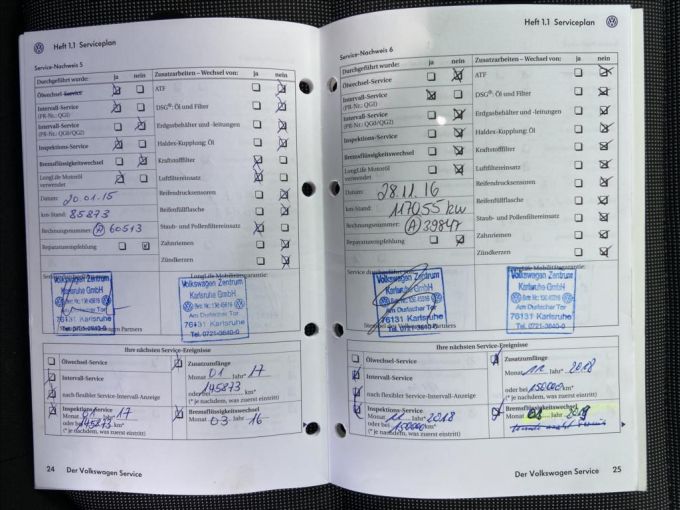 Heft 1.1 Serviceplan
Service-Nachweis 5
Durchgeführt wurde: ja nein
Ölwechsel-Service
Intervall-Service
(PR-Nr.: QGI)
Intervall-Service
(PR-Nr.: QG0/QG2)
Inspektions-Service
Bremsflüssigkeitswechsel
LongLife Motoröl
verwendet
Datum: 20.01.15
km-Stand: 85873
Rechnungsnummer: A 60513
Reparaturempfehlung
Zusatzarbeiten – Wechsel von: ja nein
ATF
DSG®: Öl und Filter
Erdgasbehälter und -leitungen
Haldex-Kupplung: Öl
Kraftstofffilter
Luftfiltereinsatz
Reifendrucksensoren
Reifenfüllflasche
Staub- und Pollenfiltereinsatz
Zahnriemen
Zündkerzen
LongLife Mobilitätsgarantie:
Volkswagen Zentrum
Karlsruhe GmbH
Am Durlacher Tor
76131 Karlsruhe
Tel. 0721-3640-0
Volkswagen Zentrum
Karlsruhe GmbH
Am Durlacher Tor
76131 Karlsruhe
Tel. 0721-3640-0
Partners
Ihre nächsten Service-Ereignisse
Ölwechsel-Service
Intervall-Service
nach flexibler Service-Intervall-Anzeige
Inspektions-Service
Monat 01 Jahr* 17
oder bei 145873 km*
(* je nachdem, was zuerst eintritt)
Zusatzumfänge
Monat 01 Jahr* 17
oder bei 145873 km*
(* je nachdem, was zuerst eintritt)
Bremsflüssigkeitswechsel
Monat 03 Jahr 16
24 Der Volkswagen Service
Heft 1.1 Serviceplan
Service-Nachweis 6
Durchgeführt wurde: ja nein
Ölwechsel-Service
Intervall-Service
(PR-Nr.: QGI)
Intervall-Service
(PR-Nr.: QG0/QG2)
Inspektions-Service
Bremsflüssigkeitswechsel
LongLife Motoröl
verwendet
Datum: 28.11.16
km-Stand: 117055 km
Rechnungsnummer: A 39847
Reparaturempfehlung
Zusatzarbeiten – Wechsel von: ja nein
ATF
DSG®: Öl und Filter
Erdgasbehälter und -leitungen
Haldex-Kupplung: Öl
Kraftstofffilter
Luftfiltereinsatz
Reifendrucksensoren
Reifenfüllflasche
Staub- und Pollenfiltereinsatz
Zahnriemen
Zündkerzen
Service durchgeführt
Mobilitätsgarantie:
Volkswagen Zentrum
Karlsruhe GmbH
Am Durlacher Tor
76131 Karlsruhe
Tel. 0721-3640-0
Volkswagen Zentrum
Karlsruhe GmbH
Am Durlacher Tor
76131 Karlsruhe
Tel. 0721-3640-0
Partners
Ihre nächsten Service-Ereignisse
Ölwechsel-Service
Intervall-Service
nach flexibler Service-Intervall-Anzeige
Inspektions-Service
Monat 11 Jahr* 2018
oder bei 150000 km*
(* je nachdem, was zuerst eintritt)
Zusatzumfänge
Monat 11 Jahr* 2018
oder bei 150000 km*
(* je nachdem, was zuerst eintritt)
Bremsflüssigkeitswechsel
Monat 01 Jahr 2019
Der Volkswagen Service 25